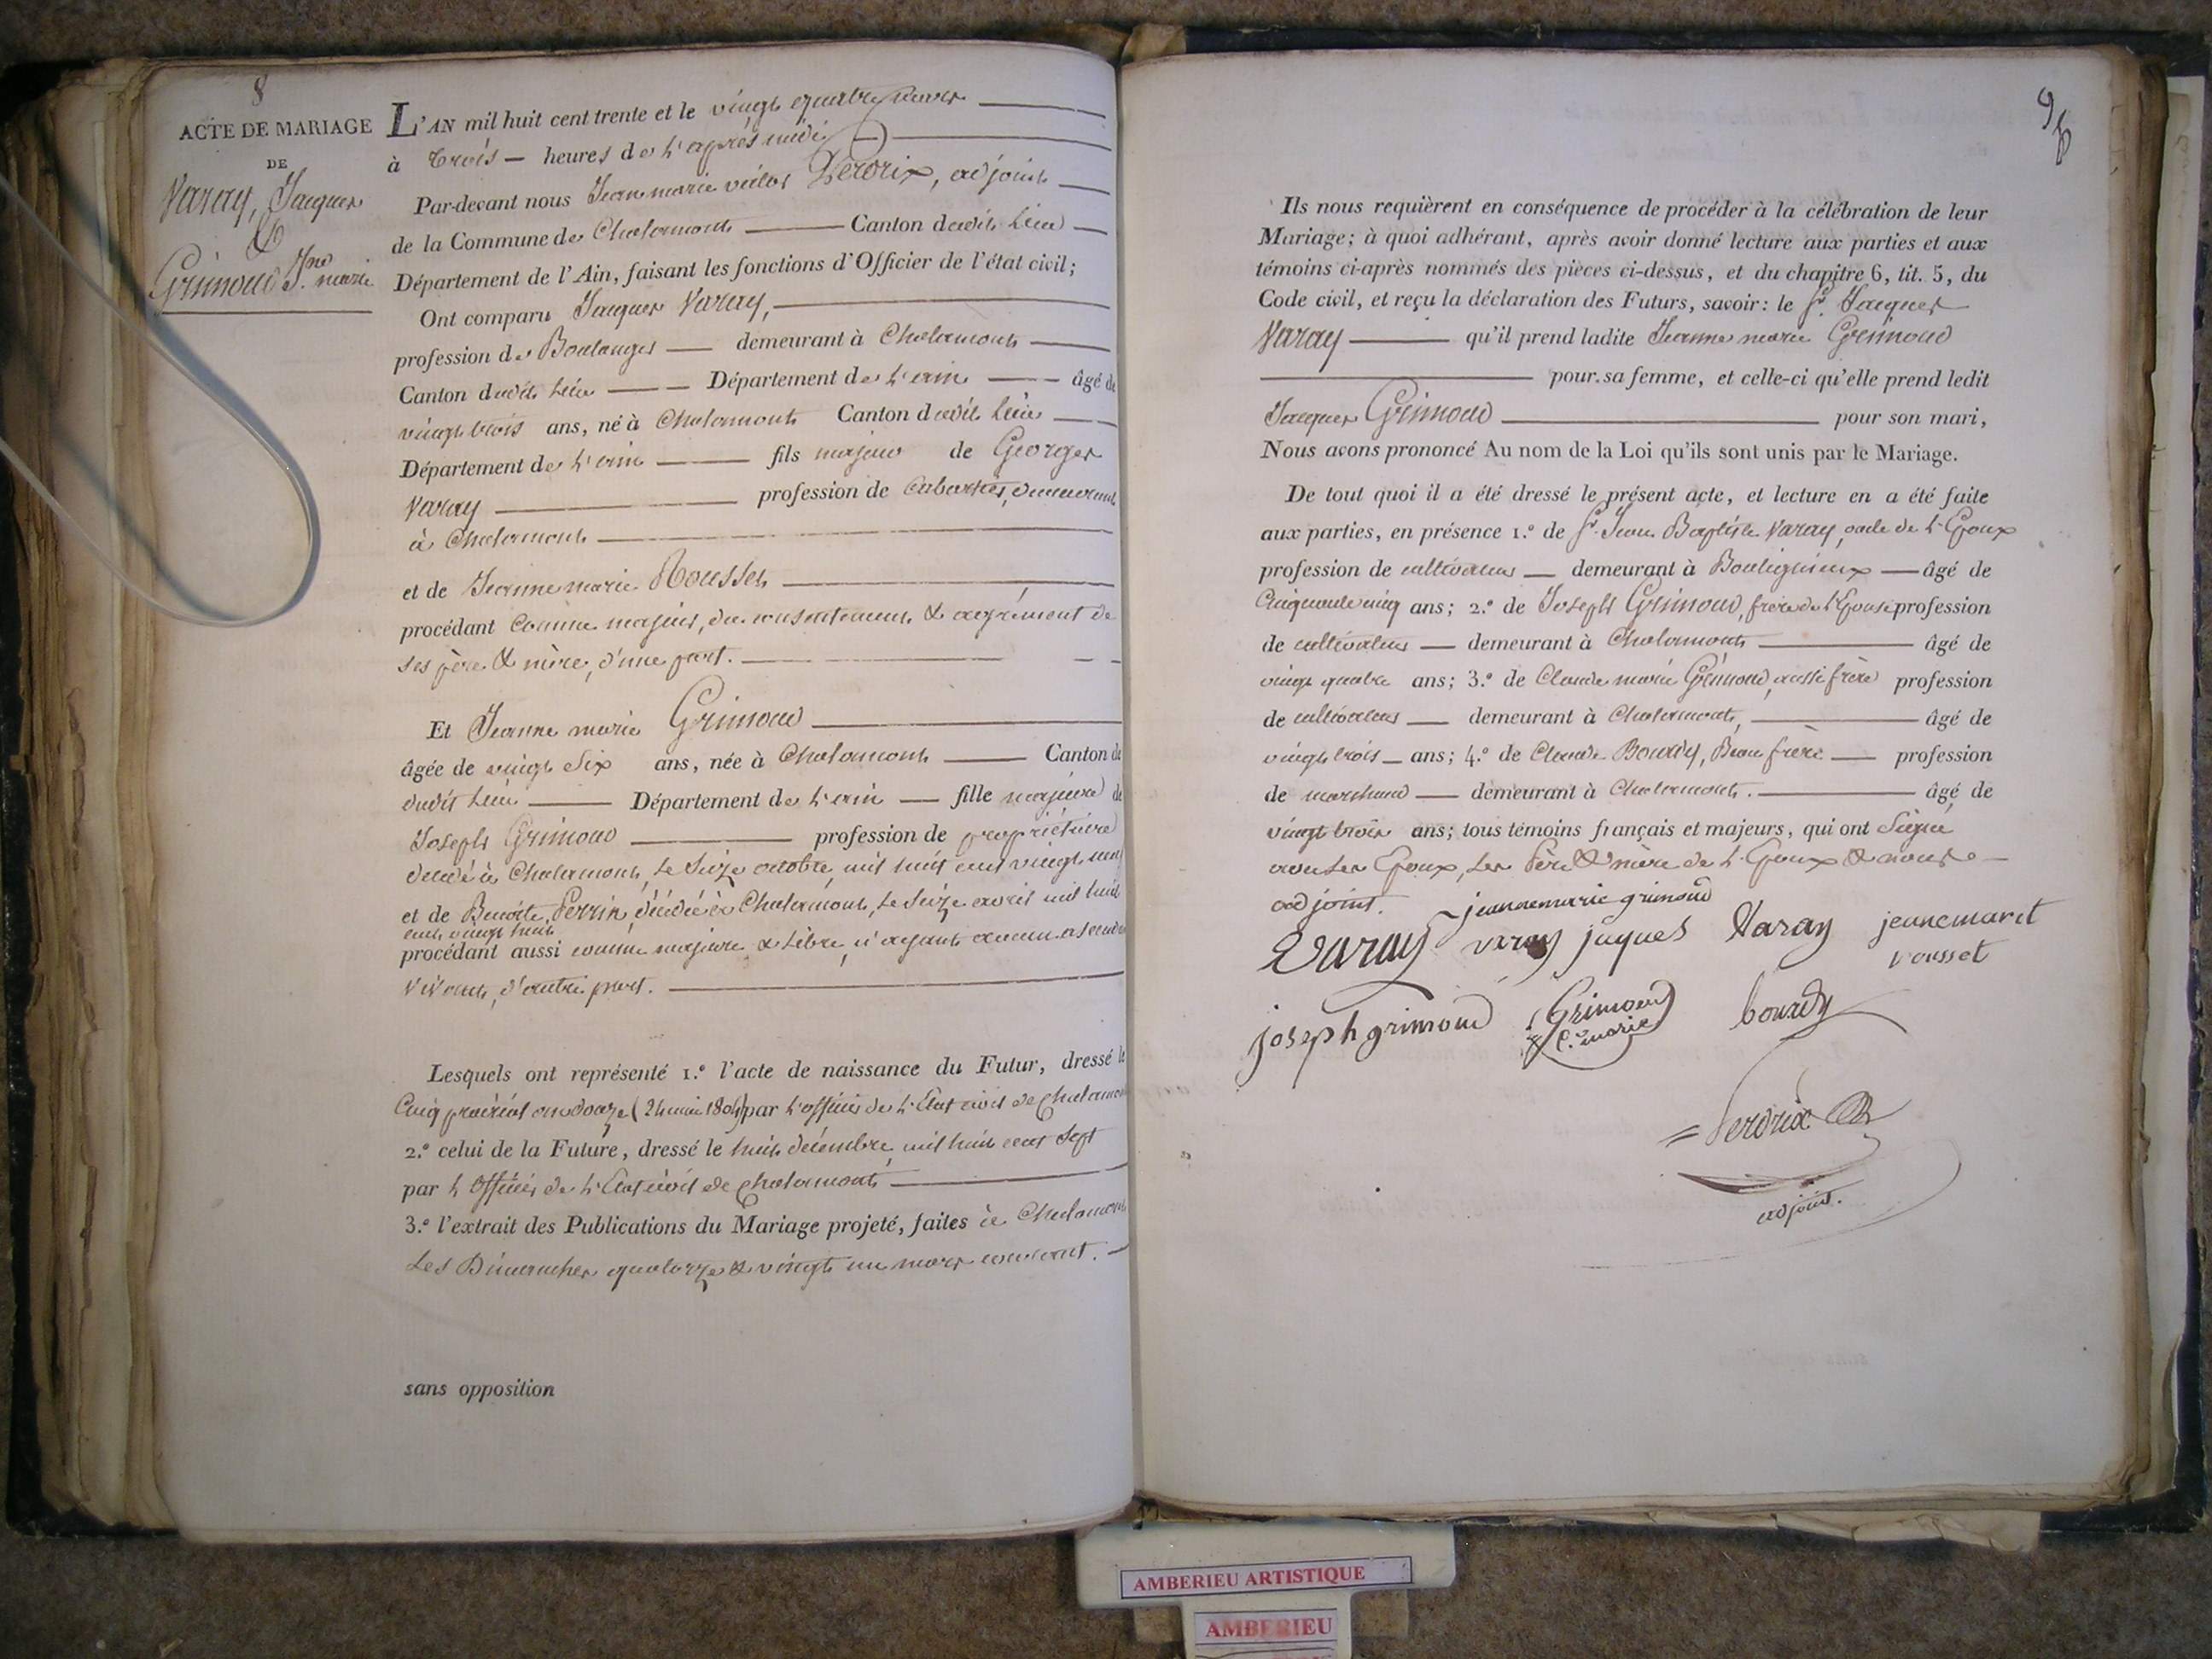 8
ACTE DE MARIAGE
DE
Varay, Jacques
&
Grimoud Jne. marie
L'AN mil huit cent trente et le vingt quatre mars
à trois heures de l'après midi
Par-devant nous Jean marie Perdrix, adjoint
de la Commune de Chalamont Canton dudit lieu
Département de l'Ain, faisant les fonctions d'Officier de l'état civil;
Ont comparu Jacques Varay,
profession de Boulanger demeurant à Chalamont
Canton dudit lieu Département de l'ain âgé de
vingt trois ans, né à Chalamont Canton dudit lieu
Département de l'ain fils majeur de Georges
Varay profession de Cabartier, demeurant
à Chalamont
et de Jeanne marie Rousset
procédant comme majeur, du consentement & agrément de
ses père & mère, d'une part.
Et Jeanne marie Grimoud
âgée de vingt six ans, née à Chalamont Canton de
dudit lieu Département de l'ain fille majeure de
Joseph Grimoud profession de propriétaire
décédé à Chalamont, le seize octobre mil huit cent vingt
et de Benoite Perrin, décédée à Chalamont, le seize avril mil huit
cent vingt huit
procédant aussi comme majeure & libre, n'ayant aucun ascendant
vivant, d'autre part.
Lesquels ont représenté 1.º l'acte de naissance du Futur, dressé le
Cinq prairial an douze (24 mai 1804) par l'officier de l'Etat civil de Chalamont
2.º celui de la Future, dressé le huit décembre mil huit cent sept
par l'officier de l'Etat civil de Chalamont
3.º l'extrait des Publications du Mariage projeté, faites à Chalamont
Les Dimanches quatorze & vingt un mars courant.
sans opposition
9
Ils nous requièrent en conséquence de procéder à la célébration de leur
Mariage; à quoi adhérant, après avoir donné lecture aux parties et aux
témoins ci-après nommés des pièces ci-dessus, et du chapitre 6, tit. 5, du
Code civil, et reçu la déclaration des Futurs, savoir: le Sr. Jacques
Varay qu'il prend ladite Jeanne marie Grimoud
pour sa femme, et celle-ci qu'elle prend ledit
Jacques Grimoud pour son mari,
Nous avons prononcé Au nom de la Loi qu'ils sont unis par le Mariage.
De tout quoi il a été dressé le présent acte, et lecture en a été faite
aux parties, en présence 1.º de Sr. Jean Baptiste Varay, oncle de l'Epoux
profession de cultivateur demeurant à Bouligneux âgé de
Cinquante cinq ans; 2.º de Joseph Grimoud, frère de l'Epouse profession
de cultivateur demeurant à Chalamont âgé de
vingt quatre ans; 3.º de Claude marie Grimoud, aussi frère profession
de cultivateur demeurant à Chalamont, âgé de
vingt trois ans; 4.º de Claude Bourdy, Beau frère profession
de marchand demeurant à Chalamont. âgé de
vingt trois ans; tous témoins français et majeurs, qui ont signé
avec les Epoux, les Père & mère de l'Epoux & nous
adjoint. jeannemarie grimoud
Varay varay jaques Varay jeannemarit
rousset
joseph grimoud Grimoud bourdy
C. marie
Perdrix
adjoint.
AMBERIEU ARTISTIQUE
AMBERIEU